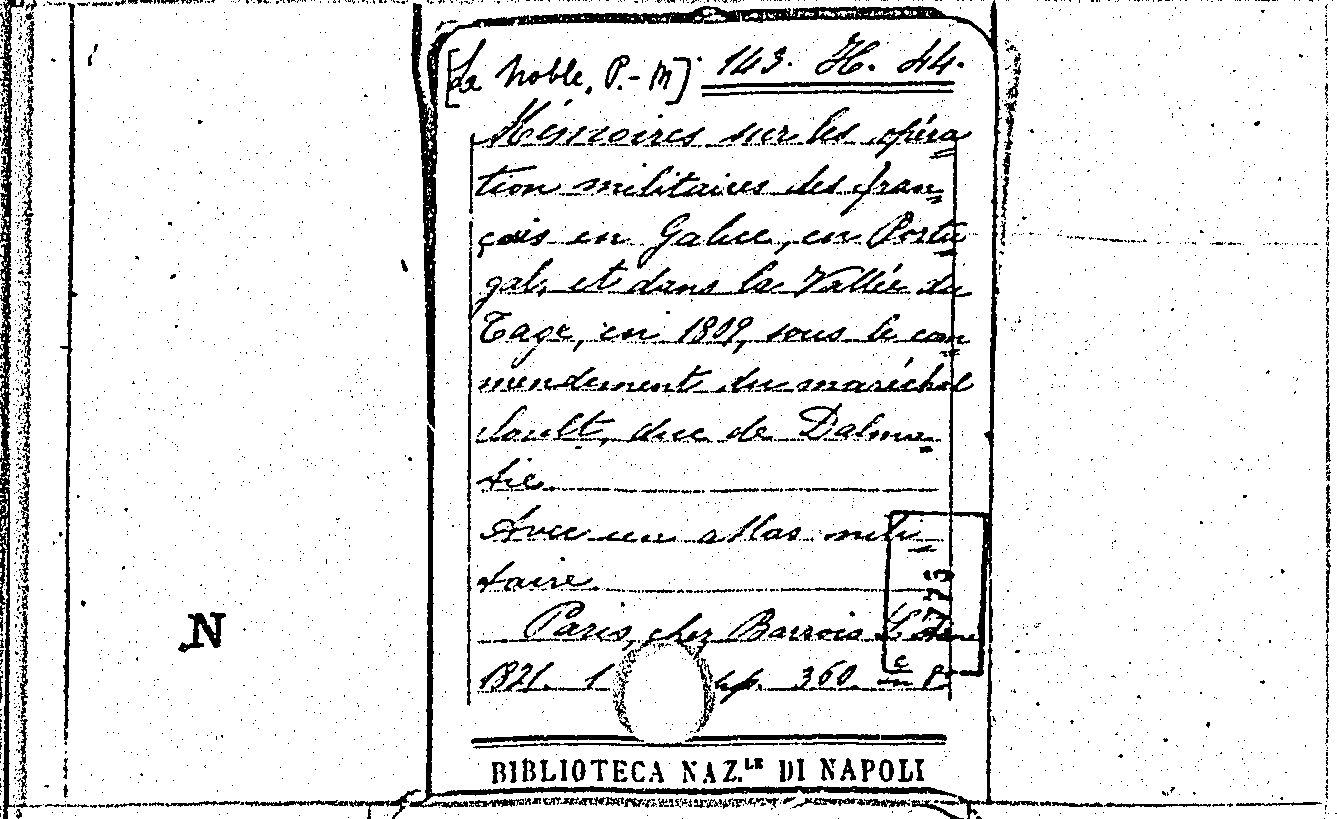 [Le Noble, P.-M] 143. H. 44.
Mémoires sur les opéra=
tion militaires des fran=
çais en Galice, en Portu=
gal, et dans la Vallée du
Tage, en 1809, sous le com=
mendement du maréchal
Soult, duc de Dalma=
tie
Avec un atlas mili=
taire.
Paris, chez Barrois L'Aine
1821. 1 p. 360.
N
BIBLIOTECA NAZ.LE DI NAPOLI